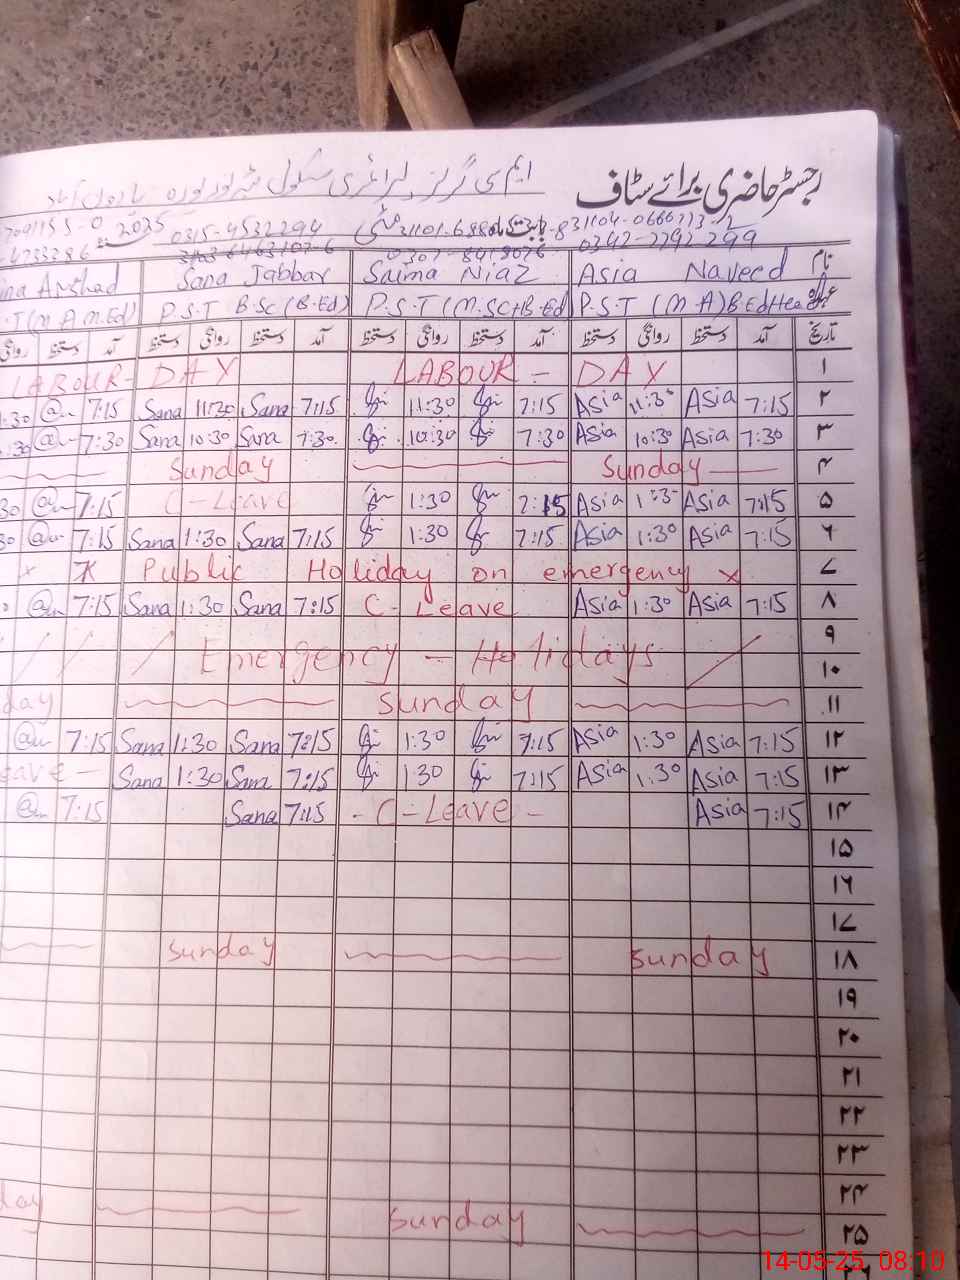 رجسٹر حاضری برائے سٹاف ایم سی گرلز پرائمری سکول
0315-4532294 2025
0342-7792299
نام Asia Naveed Saima Niaz Sana Jabbar
عہدہ P.S.T (M.A) B.Ed Head P.S.T (M.SC+B.Ed) P.S.T B.Sc (B.Ed) (M.A M.Ed)
تاریخ آمد دستخط روانگی دستخط آمد دستخط روانگی دستخط آمد دستخط روانگی دستخط آمد دستخط روانگی
۱ LABOUR - DAY LABOUR - DAY
۲ 7:15 Asia 11:30 Asia 7:15 11:30 7:15 Sana 11:30 Sana 7:15
۳ 7:30 Asia 10:30 Asia 7:30 10:30 7:30 Sana 10:30 Sana 7:30
۴ Sunday Sunday
۵ 7:15 Asia 1:30 Asia 7:15 1:30 C-Leave 7:15
۶ 7:15 Asia 1:30 Asia 7:15 1:30 7:15 Sana 1:30 Sana 7:15
۷ x Public Holiday on emergency x
۸ 7:15 Asia 1:30 Asia C-Leave 7:15 Sana 1:30 Sana 7:15
۹
۱۰ Emergency - Holidays
۱۱ Sunday
۱۲ 7:15 Asia 1:30 Asia 7:15 1:30 7:15 Sana 1:30 Sana 7:15
۱۳ 7:15 Asia 1:30 Asia 7:15 1:30 7:15 Sana 1:30 Sana
۱۴ 7:15 Asia - C-Leave - 7:15 Sana 7:15
۱۵
۱۶
۱۷
۱۸ Sunday Sunday
۱۹
۲۰
۲۱
۲۲
۲۳
۲۴
۲۵ Sunday
14-05-25 08:10